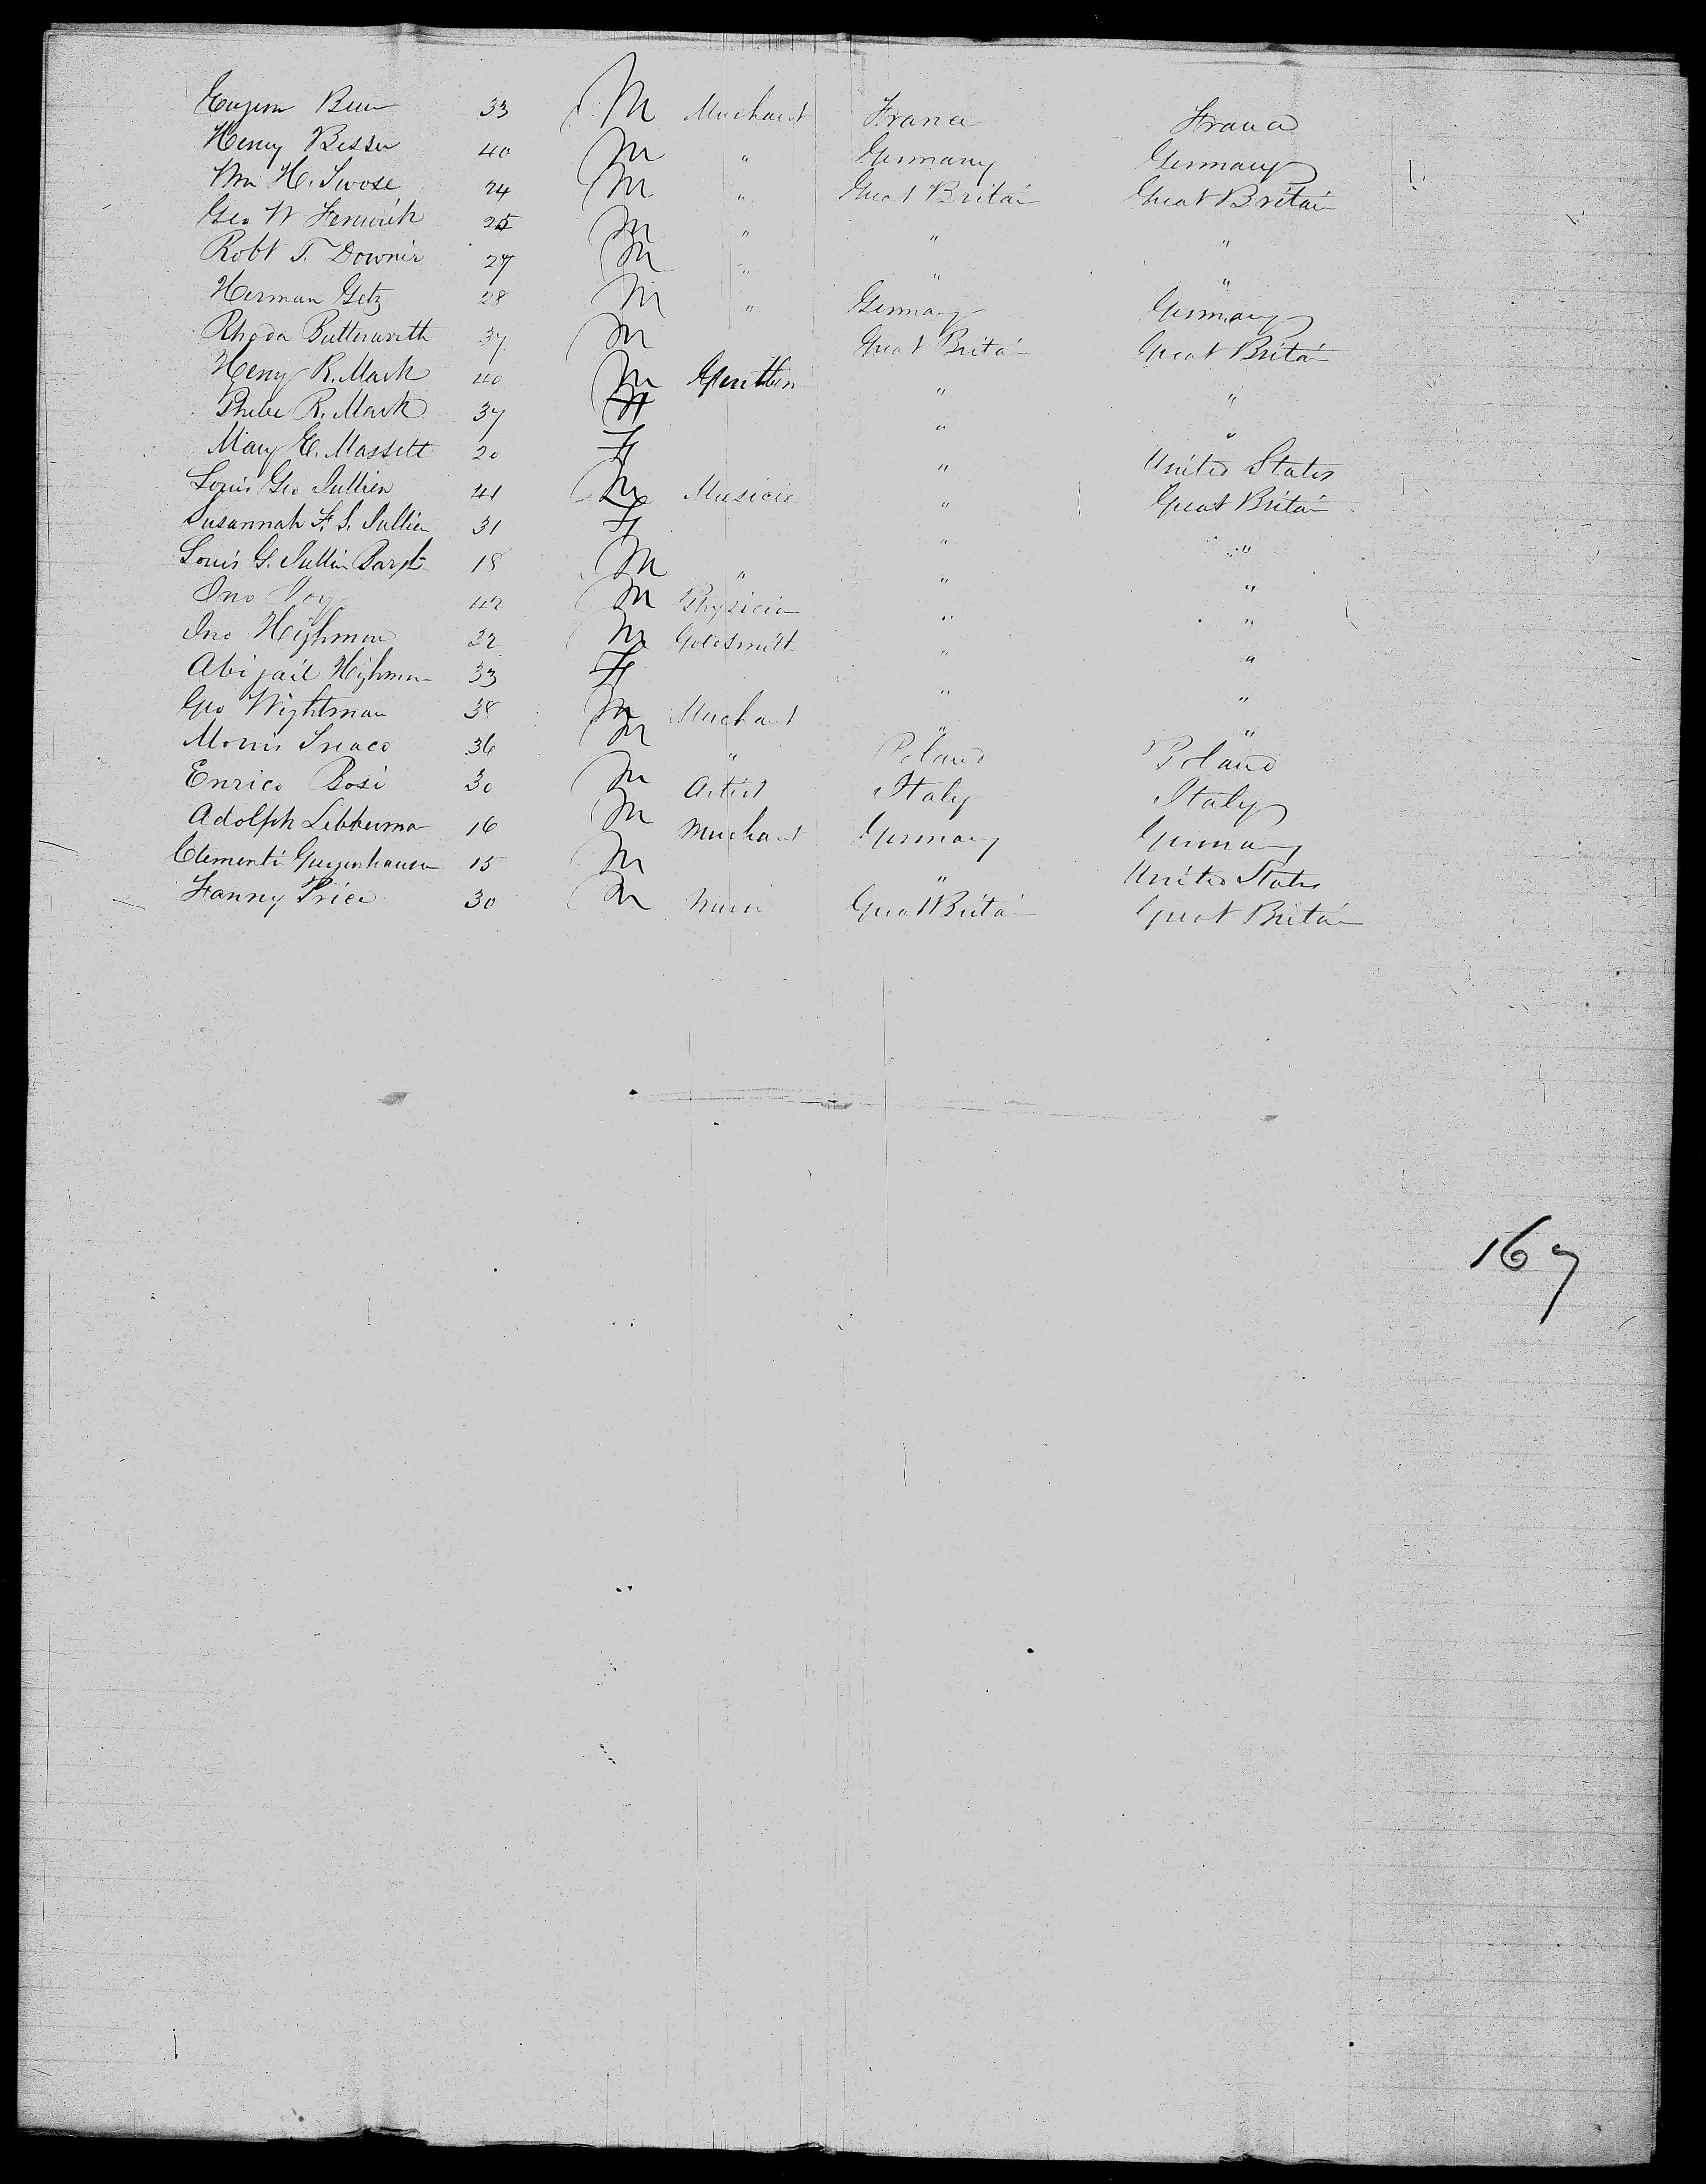 Eugene 33 M Merchant France France
Henry Besser 40 M " Germany Germany
Wm H. Swose 24 M " Great Britain Great Britain
Geo W Fenwick 25 M " " "
Robt T. Downie 27 M " " "
Herman Getz 28 M " Germany Germany
Rhoda Butterworth 37 M Great Britain Great Britain
Henry R. Mark 40 M Gentlem " "
Phebe R. Mark 37 F " "
Mary E. Massett 20 F " United States
Louis Geo Jullien 41 M Musician " Great Britain
Susannah F. S. Jullien 31 F " "
Louis G. Jullien 18 M " " "
Jno Joy 42 M Physician " "
Jno Highman 22 M Goldsmith " "
Abigail Highman 33 F " "
Geo Wightman 38 M Merchant " "
Morris 36 M " Poland Poland
Enrico Bosi 30 M Artist Italy Italy
Adolph Lebherman 16 M Merchant Germany Germany
Clementi 15 M " United States
Fanny Price 30 M Great Britain Great Britain
167